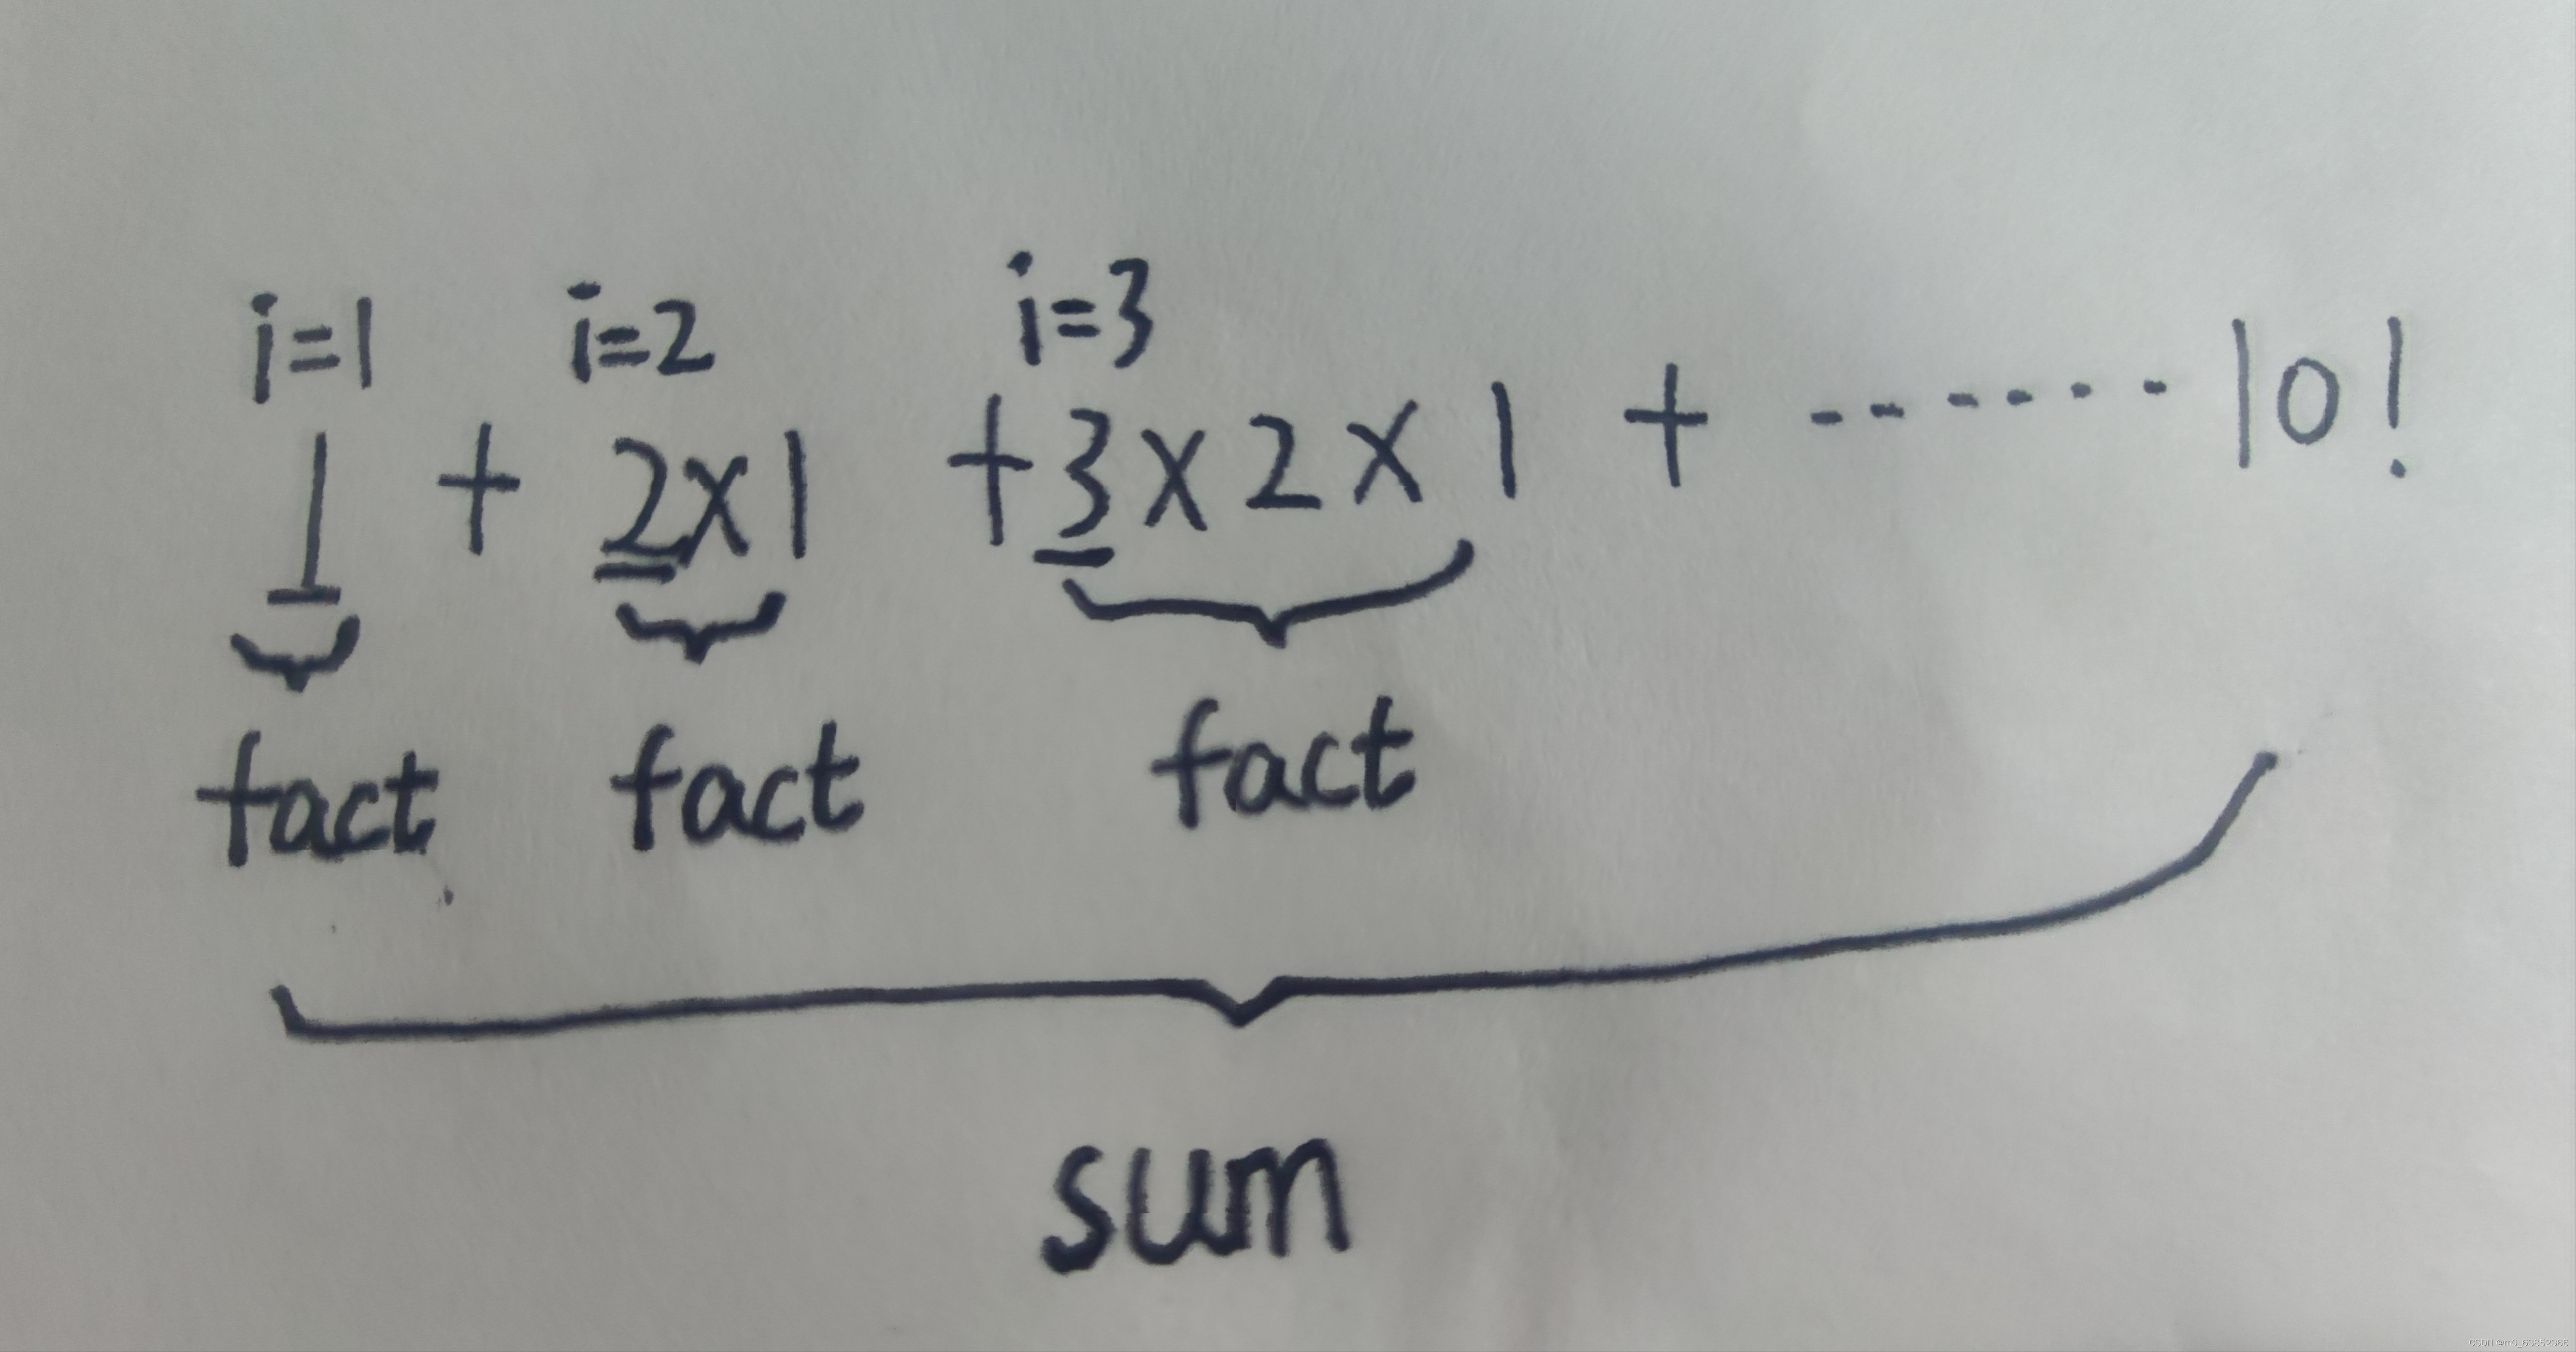 i=1 i=2 i=3
1 + 2×1 +3×2×1 + ------- 10!
fact fact fact
sum
CSDN @m0_63852366